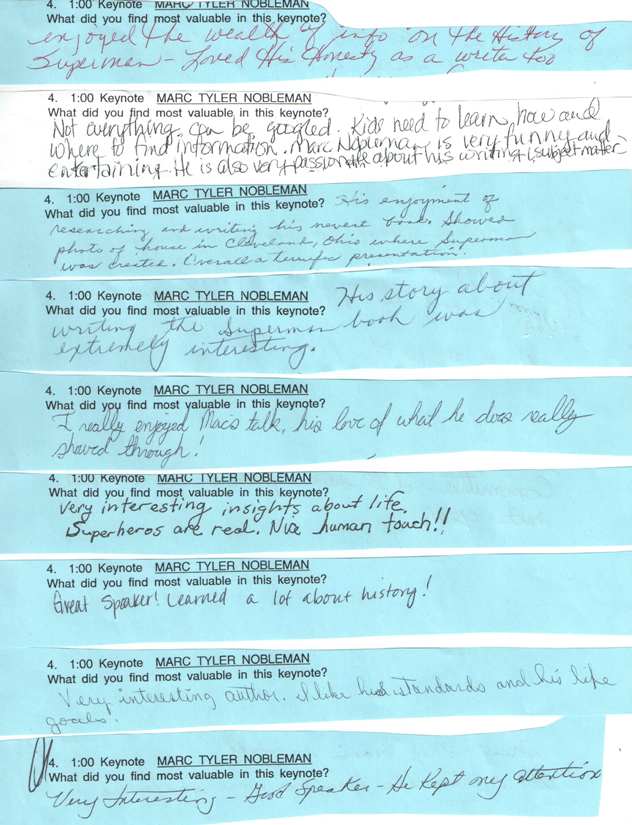 4. 1:00 Keynote MARC TYLER NOBLEMAN
What did you find most valuable in this keynote?
enjoyed the wealth of info on the History of
Superman - Loved His Honesty as a writer too
4. 1:00 Keynote MARC TYLER NOBLEMAN
What did you find most valuable in this keynote?
Not everything can be googled. Kids need to learn how and
where to find information. Marc Nobleman is very funny and
entertaining. He is also very passionate about his writing & subject matter
4. 1:00 Keynote MARC TYLER NOBLEMAN
What did you find most valuable in this keynote? His enjoyment of
researching and writing his newest book. Showed
photo of house in Cleveland, Ohio where Superman
was created. Overall a terrific presentation!
4. 1:00 Keynote MARC TYLER NOBLEMAN His story about
What did you find most valuable in this keynote?
writing the Superman book was
extremely interesting.
4. 1:00 Keynote MARC TYLER NOBLEMAN
What did you find most valuable in this keynote?
I really enjoyed Marc's talk, his love of what he does really
showed through!
4. 1:00 Keynote MARC TYLER NOBLEMAN
What did you find most valuable in this keynote?
Very interesting insights about life.
Superheros are real. Nice human touch!!
4. 1:00 Keynote MARC TYLER NOBLEMAN
What did you find most valuable in this keynote?
Great Speaker! Learned a lot about history!
4. 1:00 Keynote MARC TYLER NOBLEMAN
What did you find most valuable in this keynote?
Very interesting author. I like his standards and his life
goals.
4. 1:00 Keynote MARC TYLER NOBLEMAN
What did you find most valuable in this keynote?
Very Interesting - Good Speaker - He Kept my attention